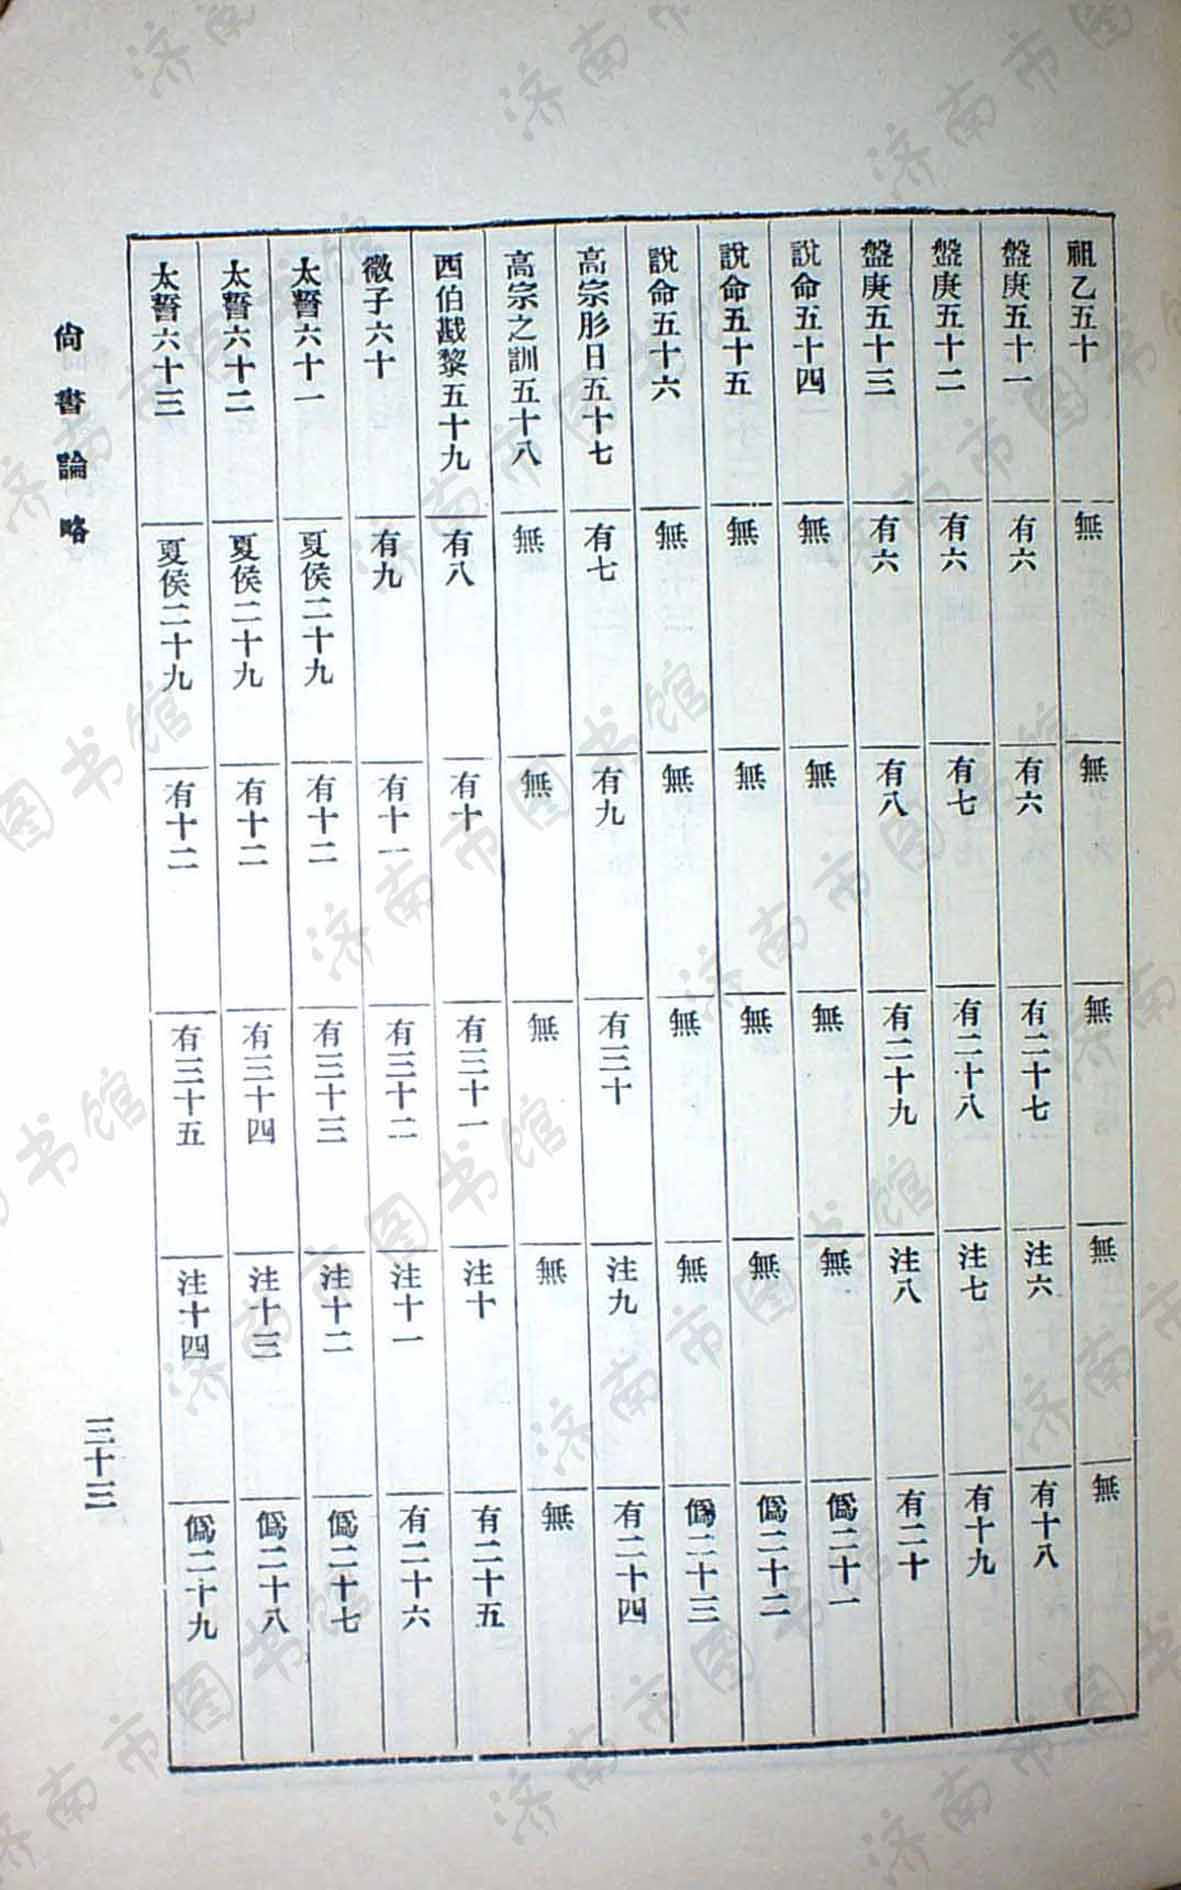 祖乙五十 無 無 無 無 無
盤庚五十一 有六 有六 有二十七 注六 有十八
盤庚五十二 有六 有七 有二十八 注七 有十九
盤庚五十三 有六 有八 有二十九 注八 有二十
說命五十四 無 無 無 無 僞二十一
說命五十五 無 無 無 無 僞二十二
說命五十六 無 無 無 無 僞二十三
高宗肜日五十七 有七 有九 有三十 注九 有二十四
高宗之訓五十八 無 無 無 無 無
西伯戡黎五十九 有八 有十 有三十一 注十 有二十五
微子六十 有九 有十一 有三十二 注十一 有二十六
太誓六十一 夏侯二十九 有十二 有三十三 注十二 僞二十七
太誓六十二 夏侯二十九 有十二 有三十四 注十三 僞二十八
太誓六十三 夏侯二十九 有十二 有三十五 注十四 僞二十九
尙書論略
三十三
济南市图书馆